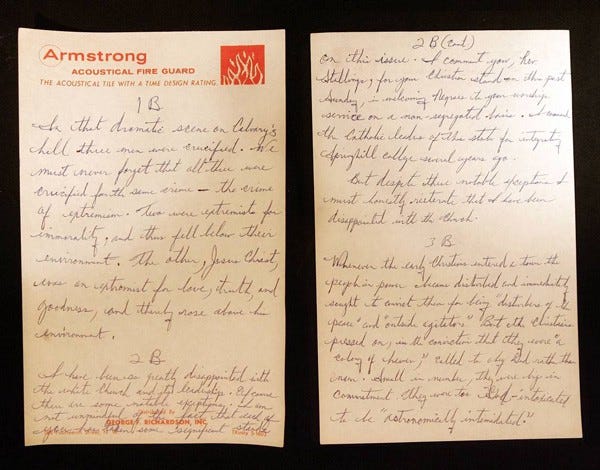 Armstrong
ACOUSTICAL FIRE GUARD
THE ACOUSTICAL TILE WITH A TIME DESIGN RATING
1 B
In that dramatic scene on Calvary's
hill three men were crucified. We
must never forget that all three were
crucified for the same crime — the crime
of extremism. Two were extremists for
immorality, and thus fell below their
environment. The other, Jesus Christ,
was an extremist for love, truth, and
goodness, and thereby rose above his
environment.
2 B
I have been so greatly disappointed with
the white Church and its leadership. Of course
there are some notable exceptions. I am
not unmindful of the fact that each of
you has taken some significant stands
GEORGE F. RICHARDSON, INC.
2 B (cont)
on this issue. I commend you, Rev.
Stallings, for your Christian stand on this past
Sunday, in welcoming Negroes to your worship
service on a non-segregated basis. I commend
the Catholic leaders of this state for integrating
Springhill college several years ago.
But despite these notable exceptions I
must honestly reiterate that I have been
disappointed with the Church.
3 B
Whenever the early Christians entered a town the
people in power became disturbed and immediately
sought to convict them for being "disturbers of the
peace" and "outside agitators." But the Christians
pressed on, in the conviction that they were "a
colony of heaven," called to obey God rather than
man. Small in number, they were big in
commitment. They were too God-intoxicated
to be "astronomically intimidated."